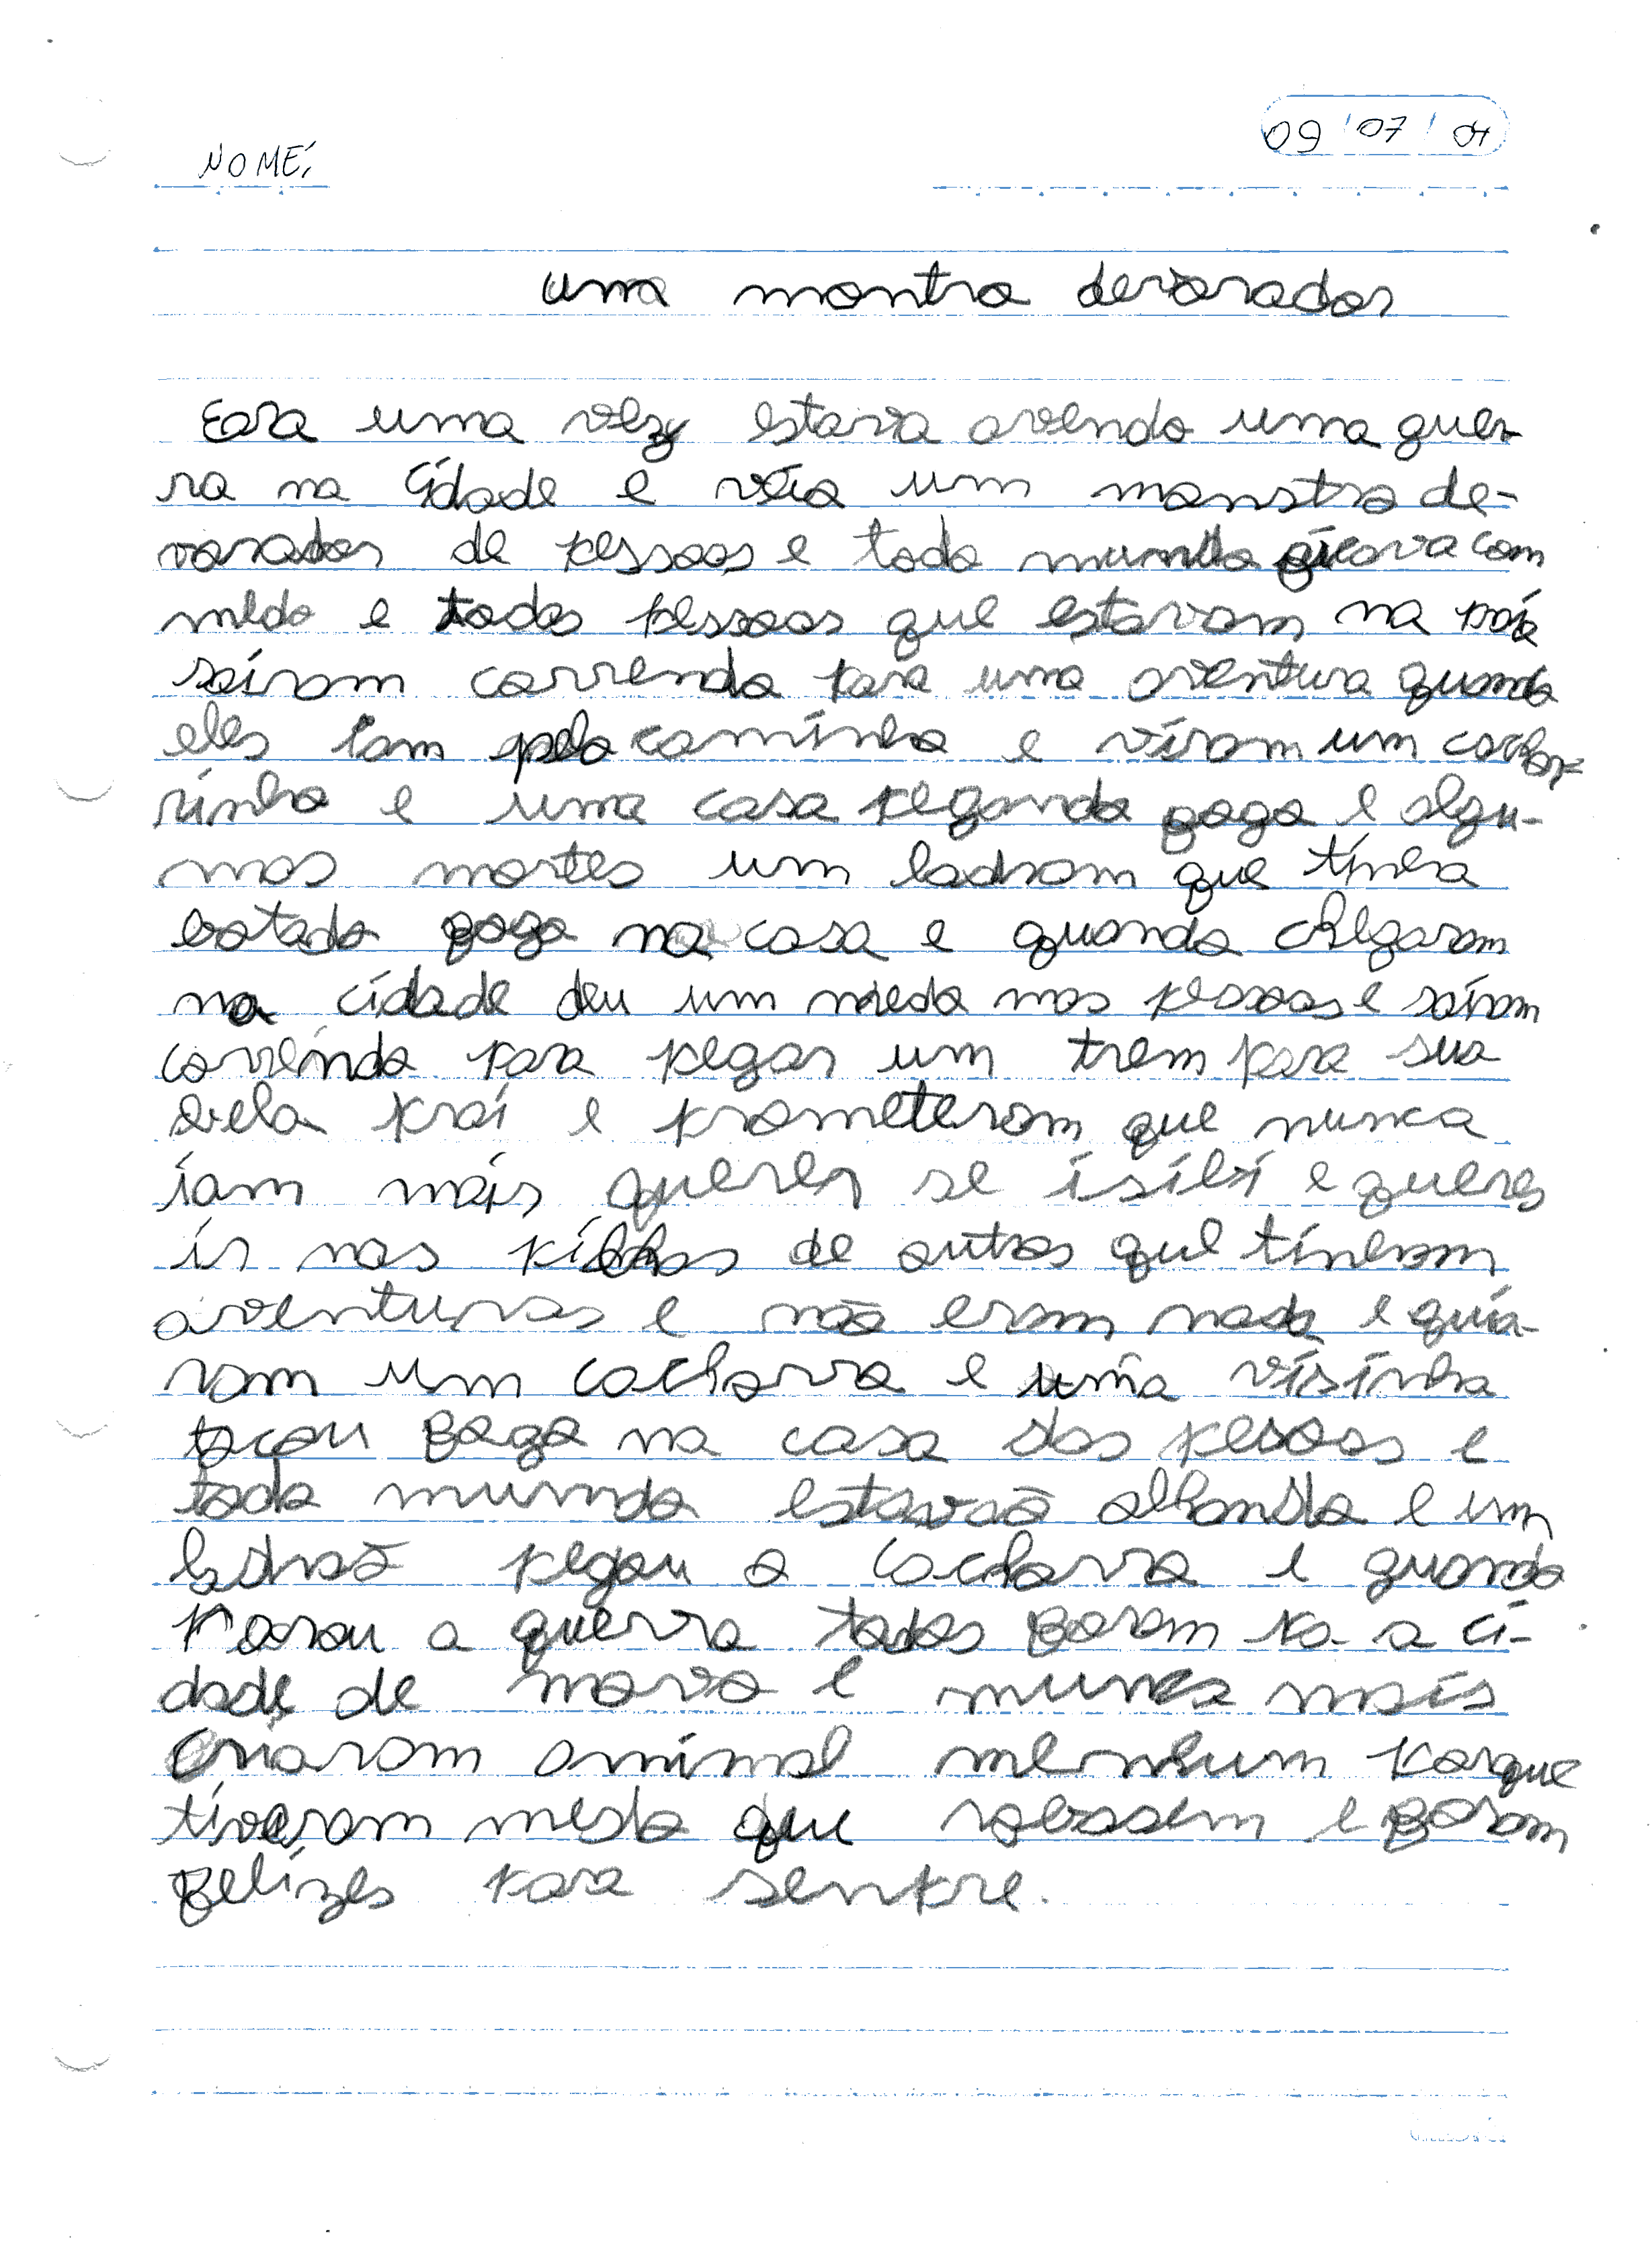 09/07/04
NOME:
uma montro devorador
Era uma vez estava avendo uma guer-
ra na cidade e veio um monstro de-
vorador de pessoas e todo mundo ficava com
medo e todas pessoas que estavam na
sairam correndo para uma aventura quando
eles iam pelo caminho e viram um cachor-
rinho e uma casa pegando fogo e algu-
mas mortes um ladrom que tinha
botado fogo na casa e quando chegaram
na cidade deu um medo nas pessoas e sairam
correndo para pegar um trem para sua
bela prai e prometeram que nunca
iam mais querer se isibi e querer
ir nos de outros que tinham
aventuras e não eram nada e
ram um cachorro e uma visinha
tocou fogo na casa das pesoas e
todo mundo estavão olhando e um
ladrão pegou o cachorro e quando
parou a guerra todos foram pa a ci-
dade de novo e nunca mais
criaram animal nenhum porque
tiveram medo que robassem e foram
felizes para senpre.